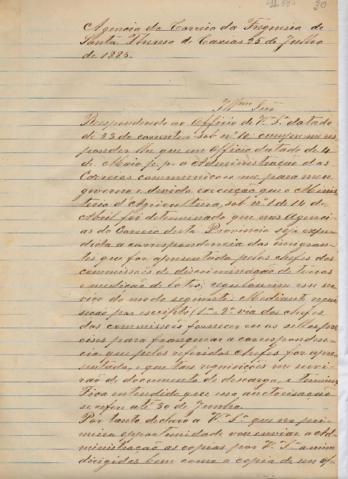 Agencia do Correio da Freguesia de
Santa Thereza de Caxias 25 de Julho
de 1885.
Illmo Snr
Respondendo ao Officio de V. Sª datado
de 23 do corrente sob nº 10 cumpre me res
ponder lhe que em Officio datado de 4
de Maio p. p. a Administração dos
Correios communicou me para meu
governo e devida execução que o Minis
terio d'Agricultura, sob nº de 14 de
Abril foi determinado que nas Agencias
do Correio desta Provincia seja expe
dida a correspondencia dos imigran
tes que for apresentada pelos chefes das
commissões de discriminação de terras
e medição de lotes, regulando esse ser
viço do modo seguinte: Mediante requi
sição por escripto 1ª 2ª via dos chefes
das commissões fornecer os sellos pre
cisos para franquear a corresponden
cia que pelos referidos chefes for apre
sentada, e que tais requisições me servi
rão de documento de descarga, e
Fica entendido que essa autorisação
até 30 de Junho.
Por tanto declaro a V. Sª que na pri
meira opportunidade vou enviar a Ad
ministração as copias por V. Sª a mim
dirigidas bem como a copia de um of